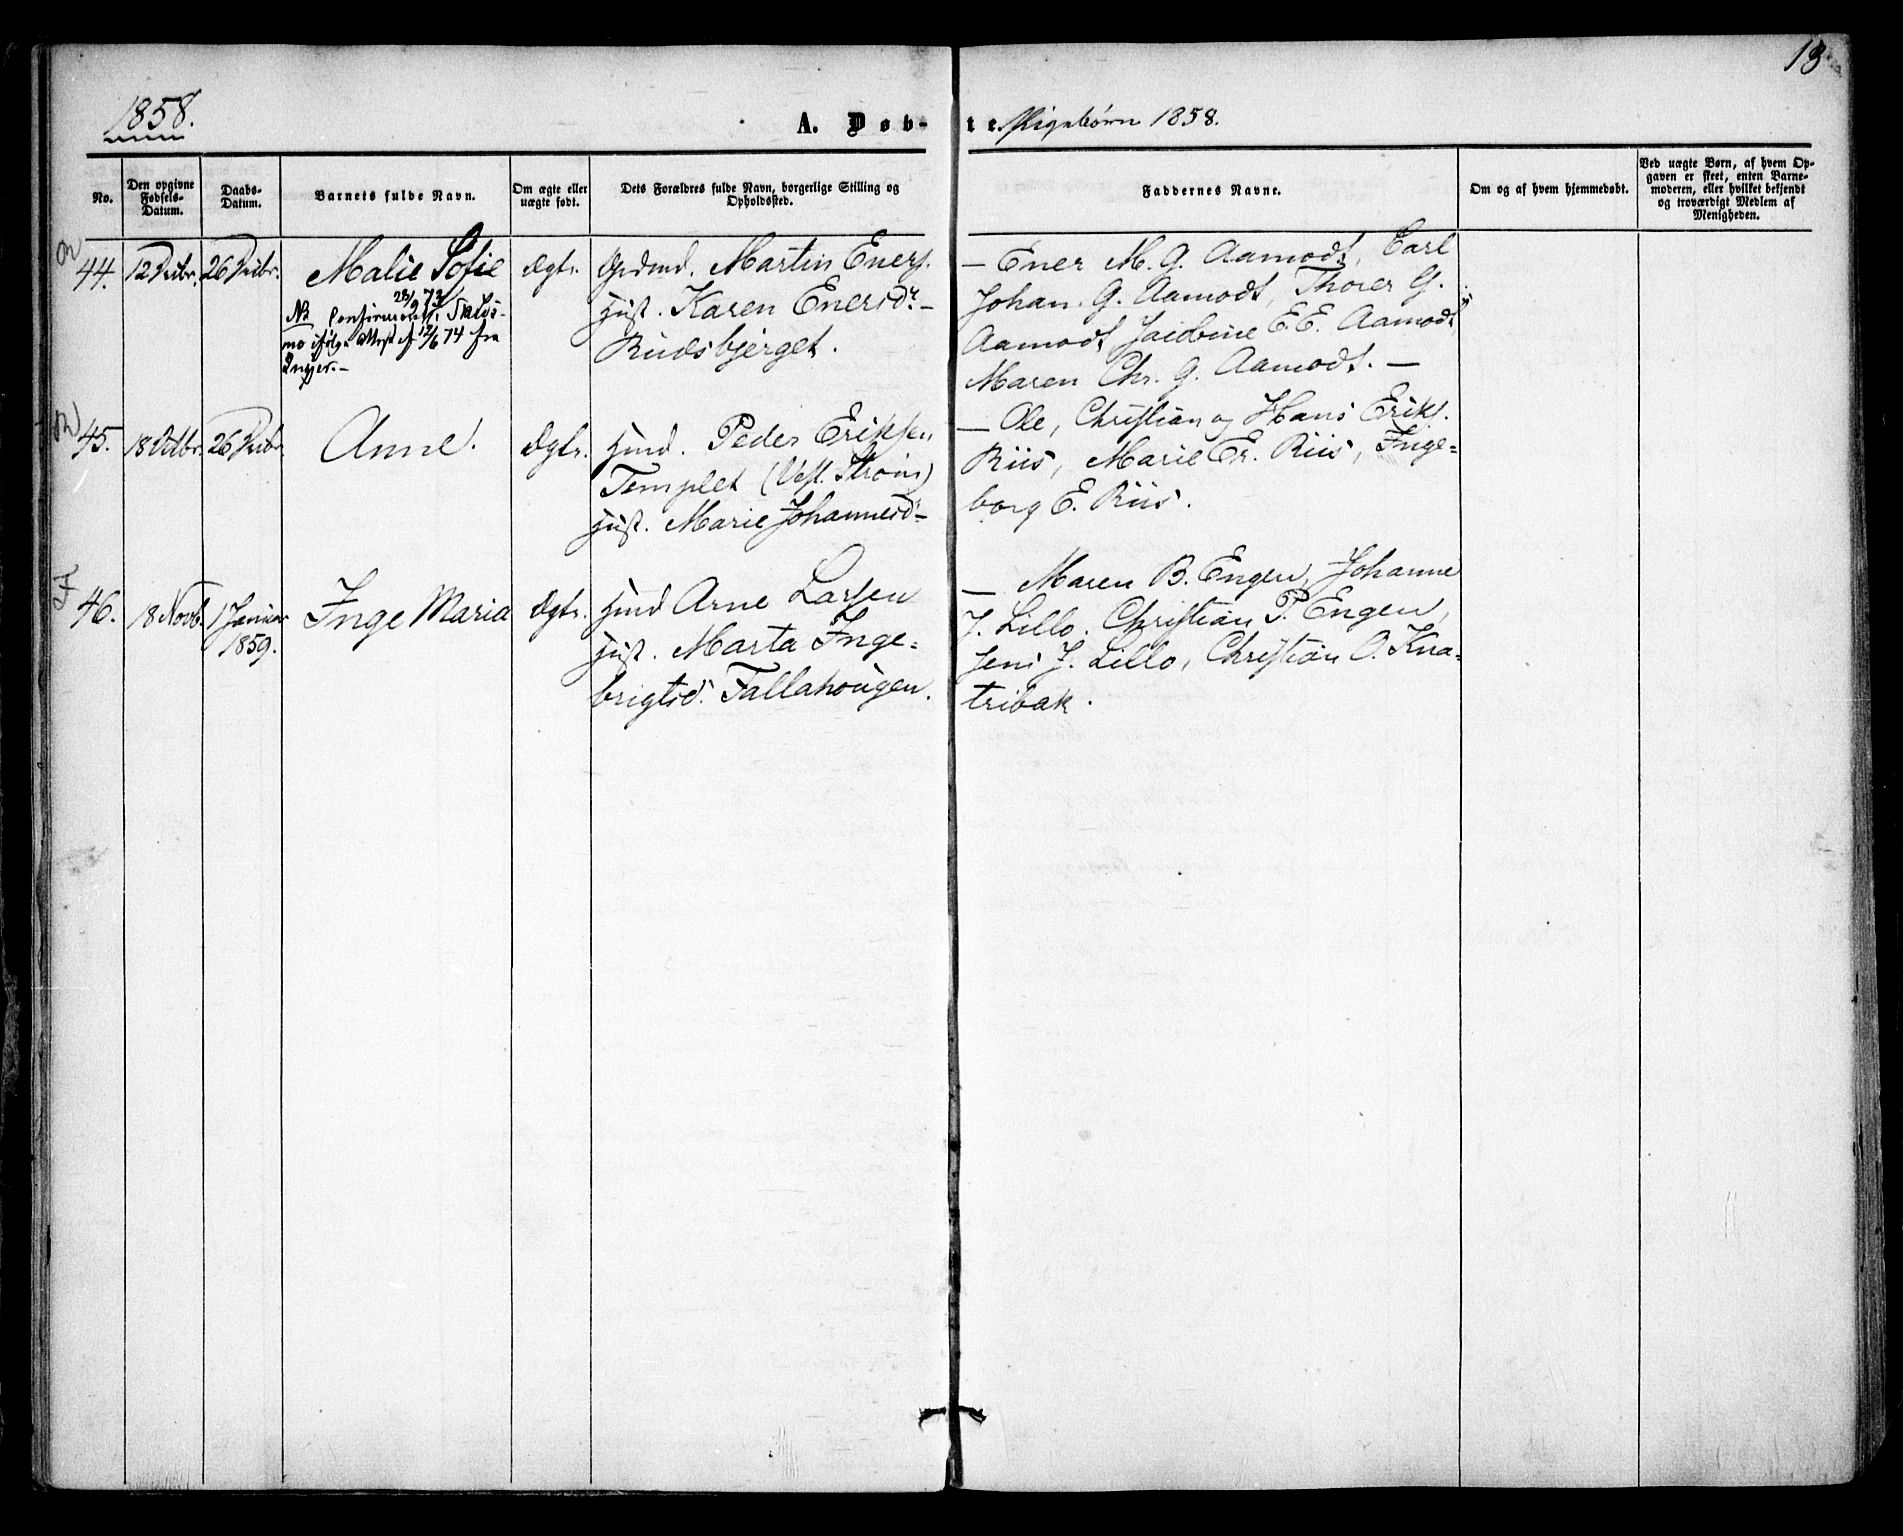 13
1858.
A. Døb-
te. Pigebørn 1858.
No.
Den opgivne
Fødsels-
Datum.
Daabs-
Datum.
Barnets fulde Navn.
Om ægte eller
uægte født.
Dets Forældres fulde Navn, borgerlige Stilling og
Opholdssted.
Faddernes Navne.
Om og af hvem hjemmedøbt.
Ved uægte Børn, af hvem Op-
gaven er skeet, enten Barne-
moderen, eller hvilket bekjendt
og troværdigt Medlem af
Menigheden.
44.
12 Decbr.
26 Decbr.
Malie Sofie
NB Confirmeret 28/9 73 i Skeds-
mo ifølge Attest af 12/6 74 fra
Ægte.
Martin Eners.
Hust. Karen Enersd.
Rudsbjerget.
— Ener M. G. Aamodt, Carl
Johan G. Aamodt, Thorer G.
Aamodt, Jacobine E. E. Aamodt,
Maren Chr. G. Aamodt. —
45.
18 Octbr.
26 Decbr.
Anne.
Ægte.
Huusmd. Peder Eriksen
Templet (Vest. Strøm)
Hust. Marie Johannesd.
— Ole, Christian og Hans Eriks.
Riis, Marie Er. Riis, Inge-
borg E. Riis.
46.
18 Novb.
1 Januar
1859.
Inge Maria
Ægte.
Huusmd. Arne Larsen
Hust. Marta Inge-
brigtsd. Fallahougen.
— Maren B. Engen, Johanne
J. Lillo, Christian P. Engen,
Jens J. Lillo, Christian O. Kna-
tribak.